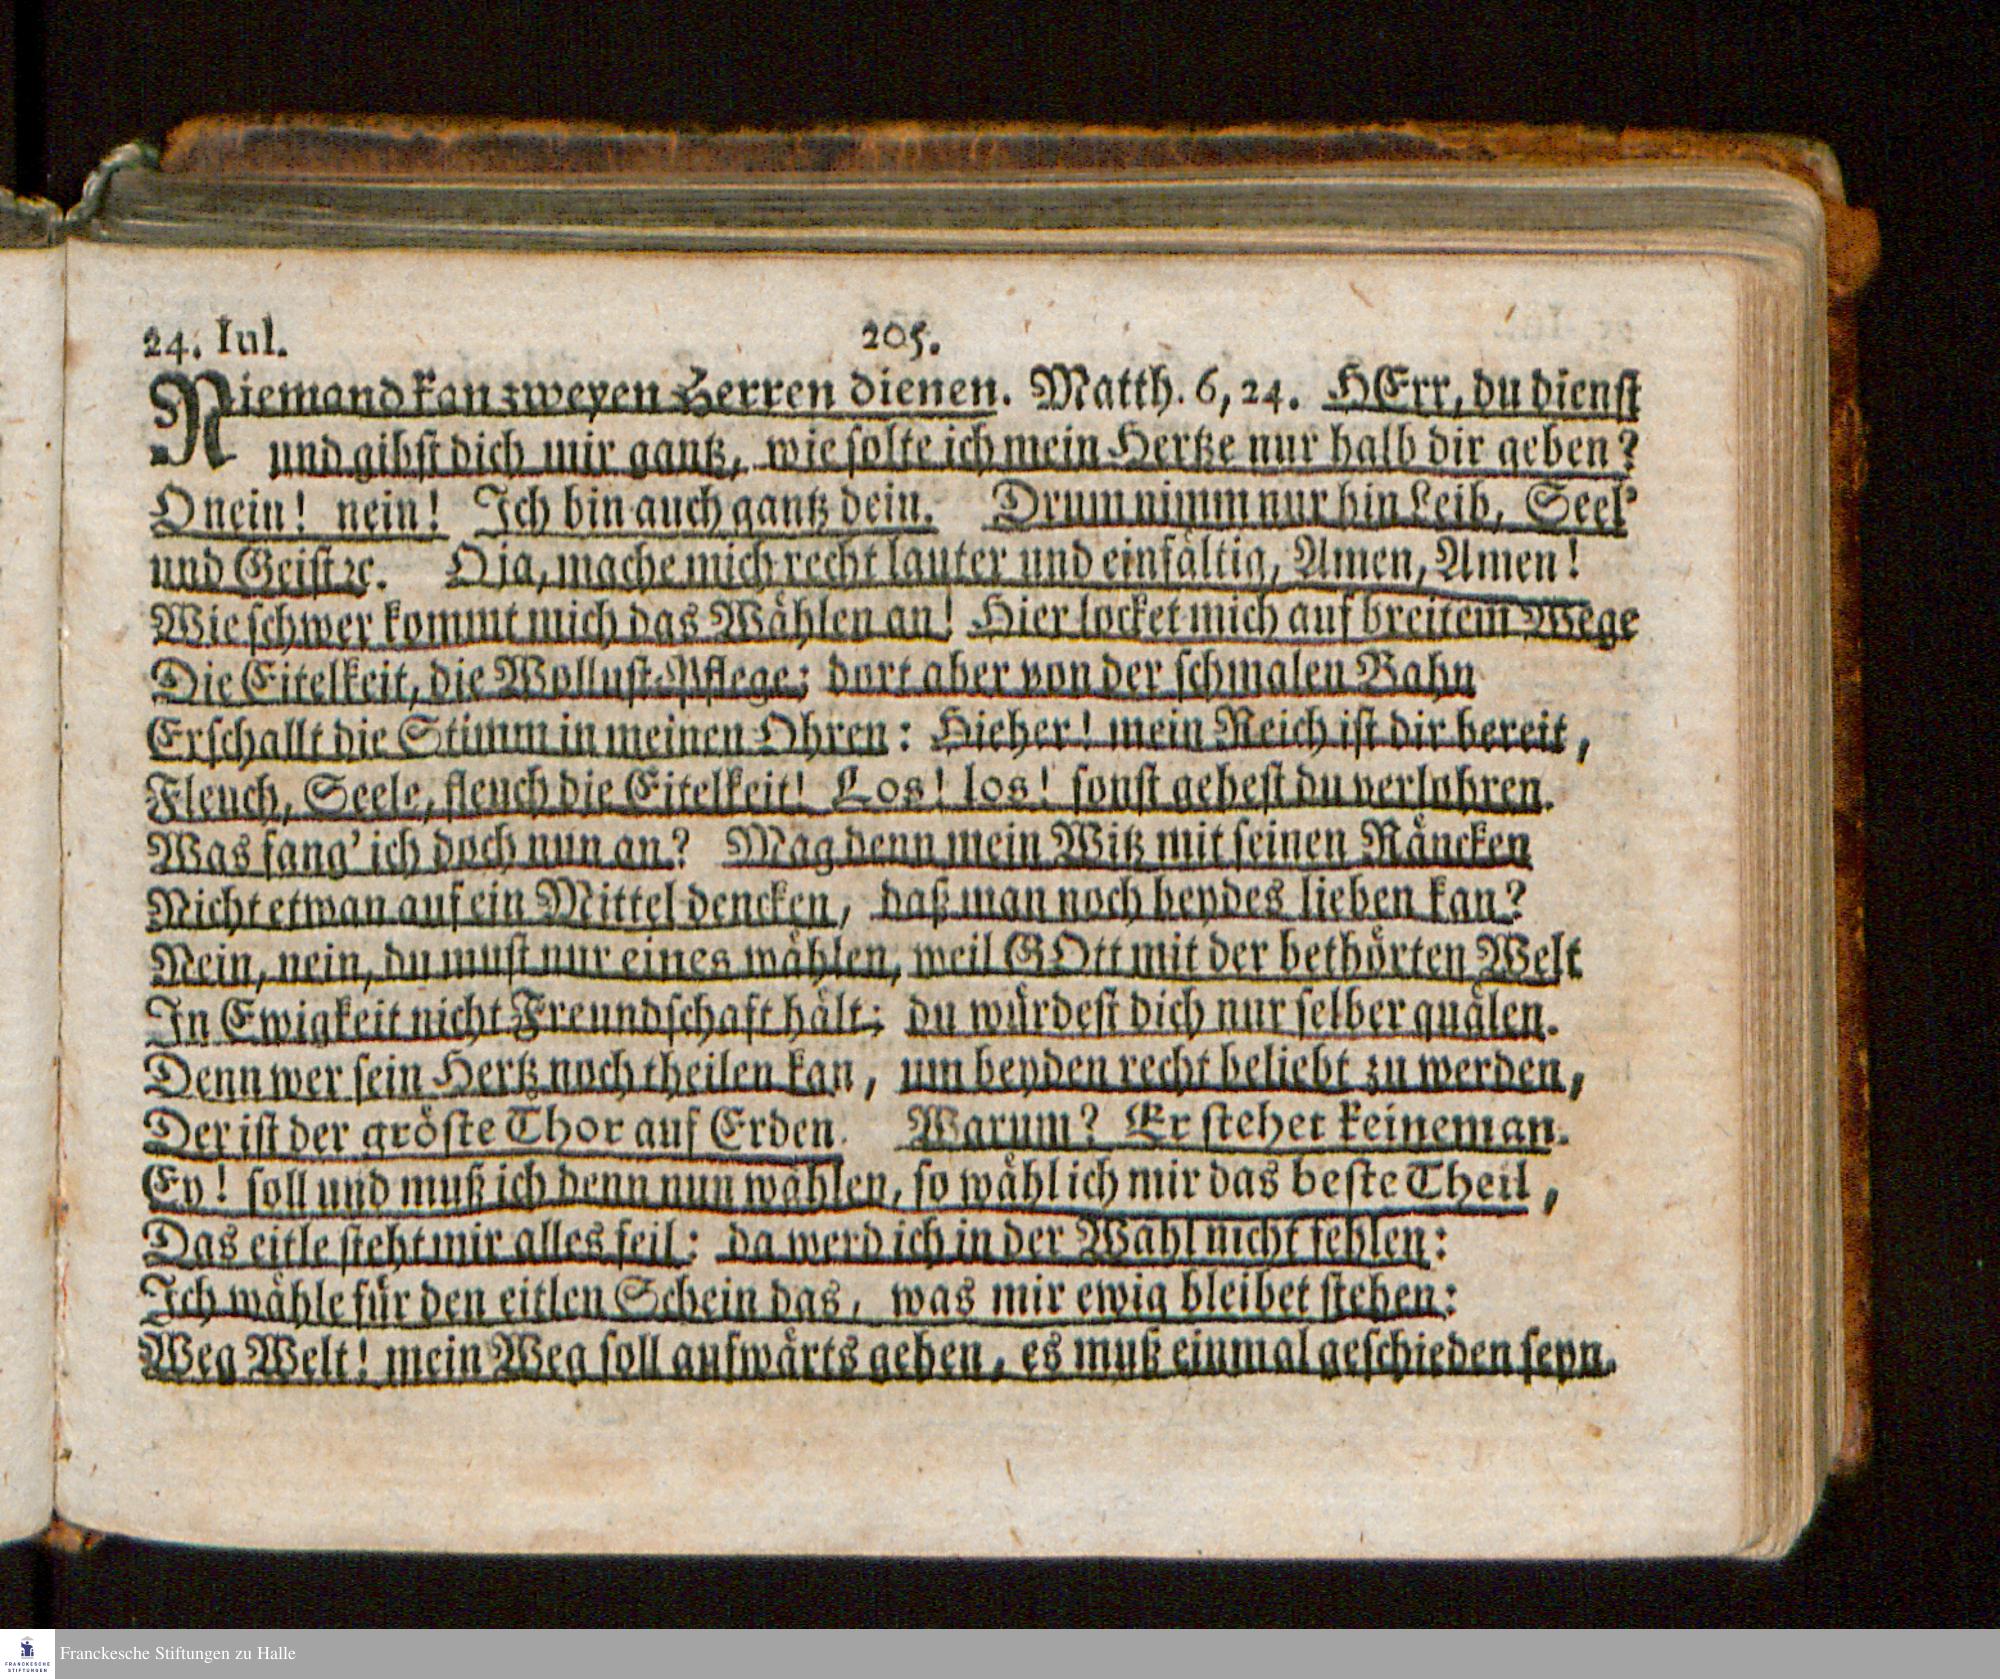 24. Iul. 205.
Niemand kan zweyen Herren dienen. Matth. 6, 24. HErr, du dienst
und gibst dich mir gantz, wie solte ich mein Hertze nur halb dir geben?
O nein! nein! Ich bin auch gantz dein. Drum nimm nur hin Leib, Seel'
und Geist ꝛc. O ja, mache mich recht lauter und einfältig, Amen, Amen!
Wie schwer kommt mich das Wählen an! Hier locket mich auf breitem Wege
Die Eitelkeit, die Wollust-Pflege; dort aber von der schmalen Bahn
Erschallt die Stimm in meinen Ohren: Hieher! mein Reich ist dir bereit,
Fleuch, Seele, fleuch die Eitelkeit! Los! los! sonst gehest du verlohren.
Was fang' ich doch nun an? Mag denn mein Witz mit seinen Räncken
Nicht etwan auf ein Mittel dencken, daß man noch beydes lieben kan?
Nein, nein, du must nur eines wählen, weil GOtt mit der bethörten Welt
In Ewigkeit nicht Freundschaft hält; du würdest dich nur selber quälen.
Denn wer sein Hertz noch theilen kan, um beyden recht beliebt zu werden,
Der ist der gröste Thor auf Erden. Warum? Er stehet keinem an.
Ey! soll und muß ich denn nun wählen, so wähl ich mir das beste Theil,
Das eitle steht mir alles feil: da werd ich in der Wahl nicht fehlen:
Ich wähle für den eitlen Schein das, was mir ewig bleibet stehen:
Weg Welt! mein Weg soll aufwärts gehen, es muß einmal geschieden seyn.
FRANCKESCHE
STIFTUNGEN
Franckesche Stiftungen zu Halle